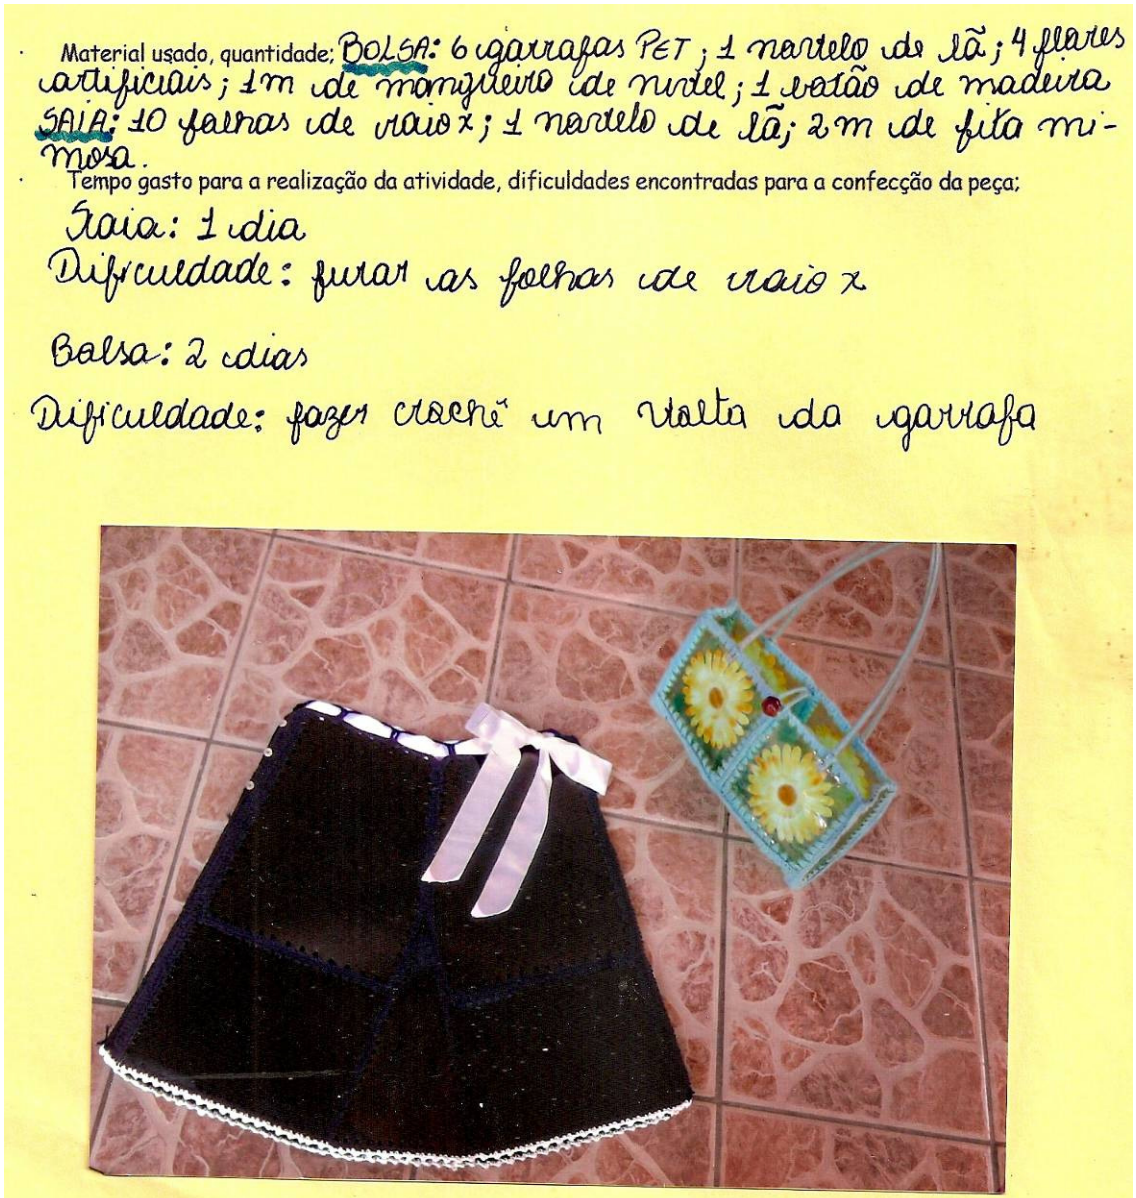 · Material usado, quantidade; BOLSA: 6 garrafas PET; 1 novelo de lã; 4 flores
artificiais; 1m de mangueira de nível; 1 botão de madeira
SAIA: 10 folhas de raio x; 1 novelo de lã; 2m de fita mi-
mosa.
· Tempo gasto para a realização da atividade, dificuldades encontradas para a confecção da peça;
Saia: 1 dia
Dificuldade: furar as folhas de raio x
Bolsa: 2 dias
Dificuldade: fazer crochê em volta da garrafa